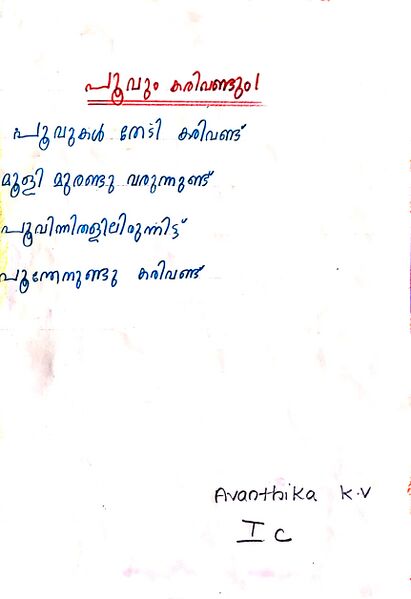 പൂവും കരിവണ്ടും!
പൂവുകൾ തേടി കരിവണ്ട്
മൂളി മുരണ്ടു വരുന്നുണ്ട്
പൂവിന്നിതളിലിരുന്നിട്ട്
പൂന്തേനുണ്ടു കരിവണ്ട്
Avanthika K.V
I C